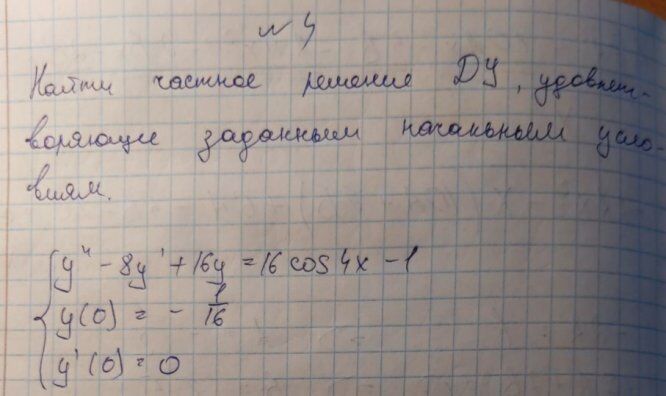 № 4
Найти частное решение ДУ, удовлет-
воряющее заданным начальным усло-
виям.
y'' - 8y' + 16y = 16 cos 4x - 1
y(0) = - 1/16
y'(0) = 0